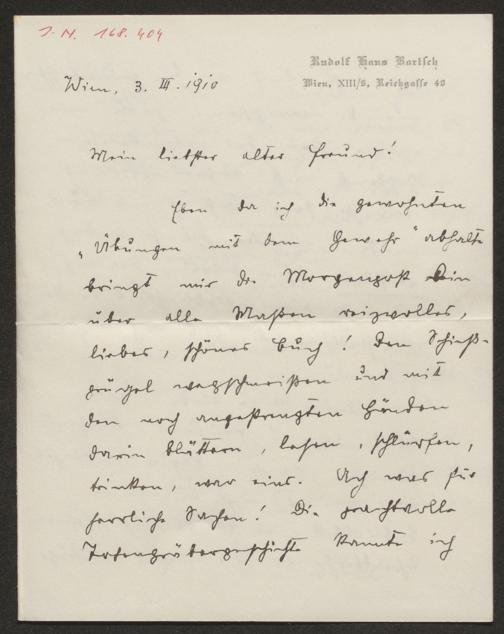 J. N. 168.404
Rudolf Hans Bartsch
Wien, XIII/8, Reichgasse 40
Wien, 3. III. 1910
Mein liebster alter Freund!
Eben da ich die gewohnten
„Übungen mit dem Gewehr“ abhalte
bringt mir die Morgenpost Dein
über alle Maßen reizvolles,
liebes, schönes Buch! Den Schieß-
prügel wegschmeißen und mit
den noch angestrengten Händen
darin blättern, lesen, schlürfen,
trinken, war eins. Ach was für
herrliche Sachen! Die prachtvolle
Totengräbergeschichte kannte ich